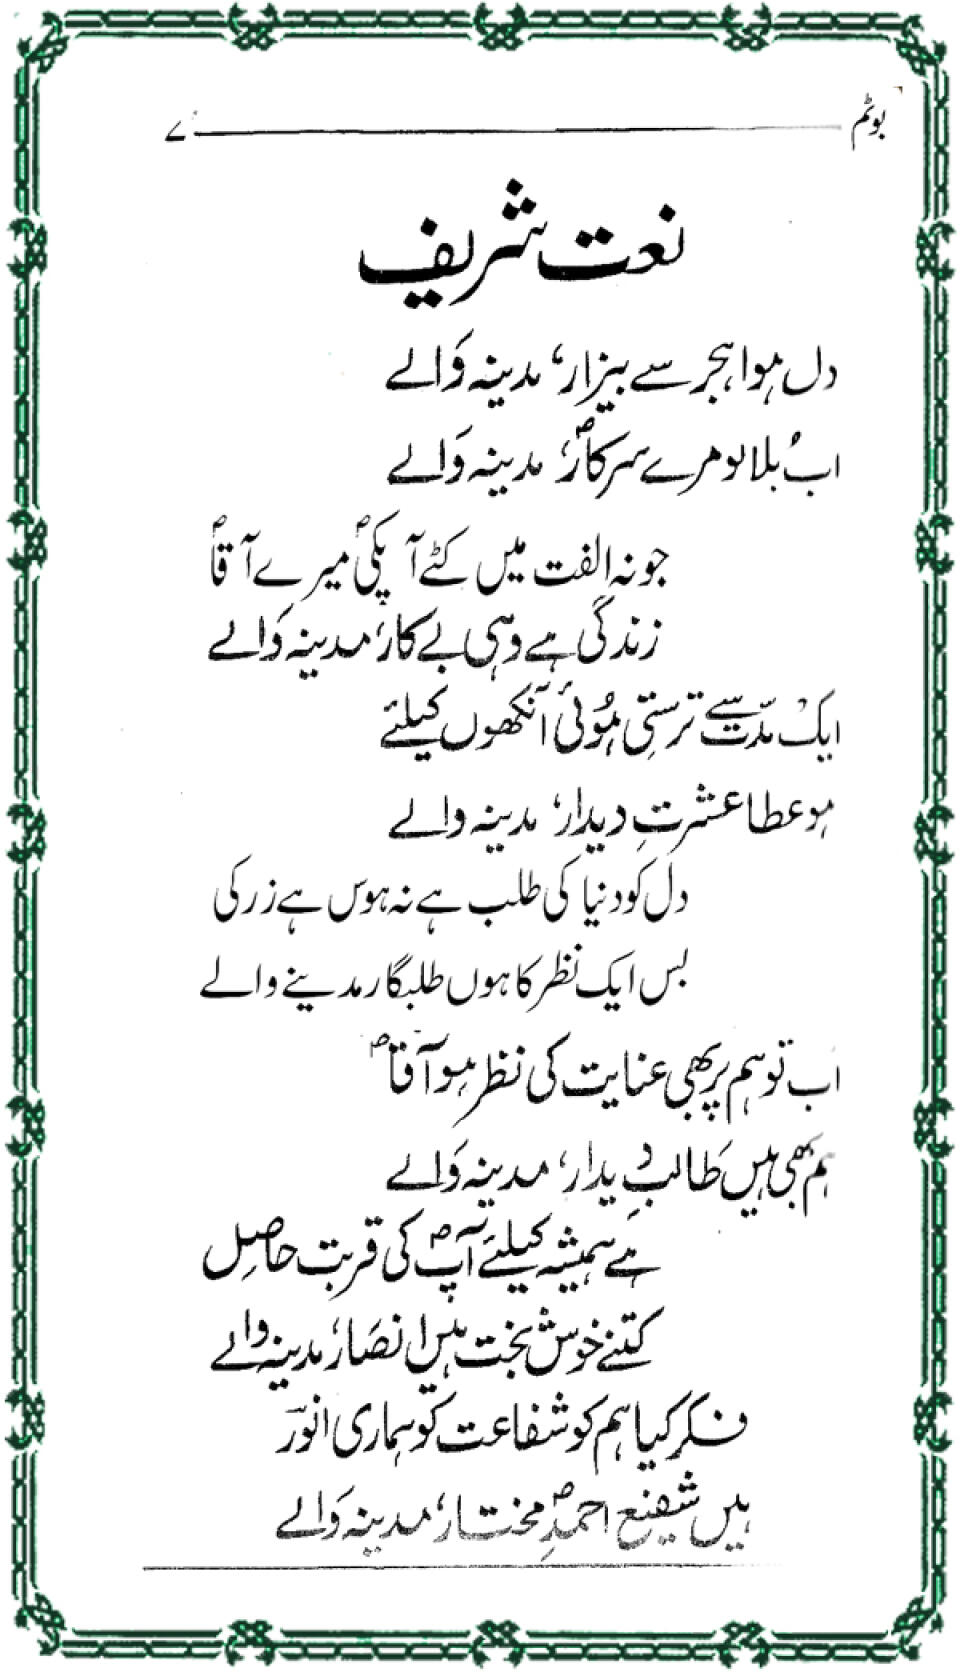 بوٹم ۷
نعت شریف
دل ہوا ہجر سے بیزار، مدینہ والے
اب بلا لو مرے سرکارؐ، مدینہ والے
جو نہ الفت میں کٹے آپؐکی میرے آقاؐ
زندگی ہے وہی بے کار، مدینہ والے
ایک مدّت سے ترستی ہُوئی آنکھوں کیلئے
ہو عطا عشرتِ دیدار، مدینہ والے
دل کو دنیا کی طلب ہے نہ ہوس ہے زر کی
بس ایک نظر کا ہوں طلبگار مدینے والے
اب تو ہم پر بھی عنایت کی نظر ہو آقاؐ
ہم بھی ہیں طالبِ دیدار، مدینہ والے
ہے ہمیشہ کیلئے آپؐ کی قربت حاصل
کتنے خوش بخت ہیں انصار، مدینہ والے
فکر کیا ہم کو شفاعت کو ہماری انورؔ
ہیں شفیع احمدِؐ مختار، مدینہ والے